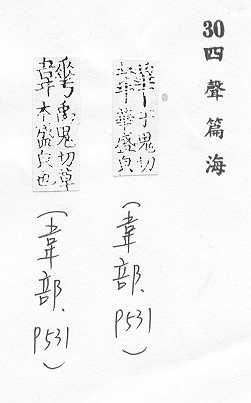 30 四聲篇海
于鬼切
華盛皃
（韋部、P531）
禹鬼切草
木盛皃也
（韋部、P531）